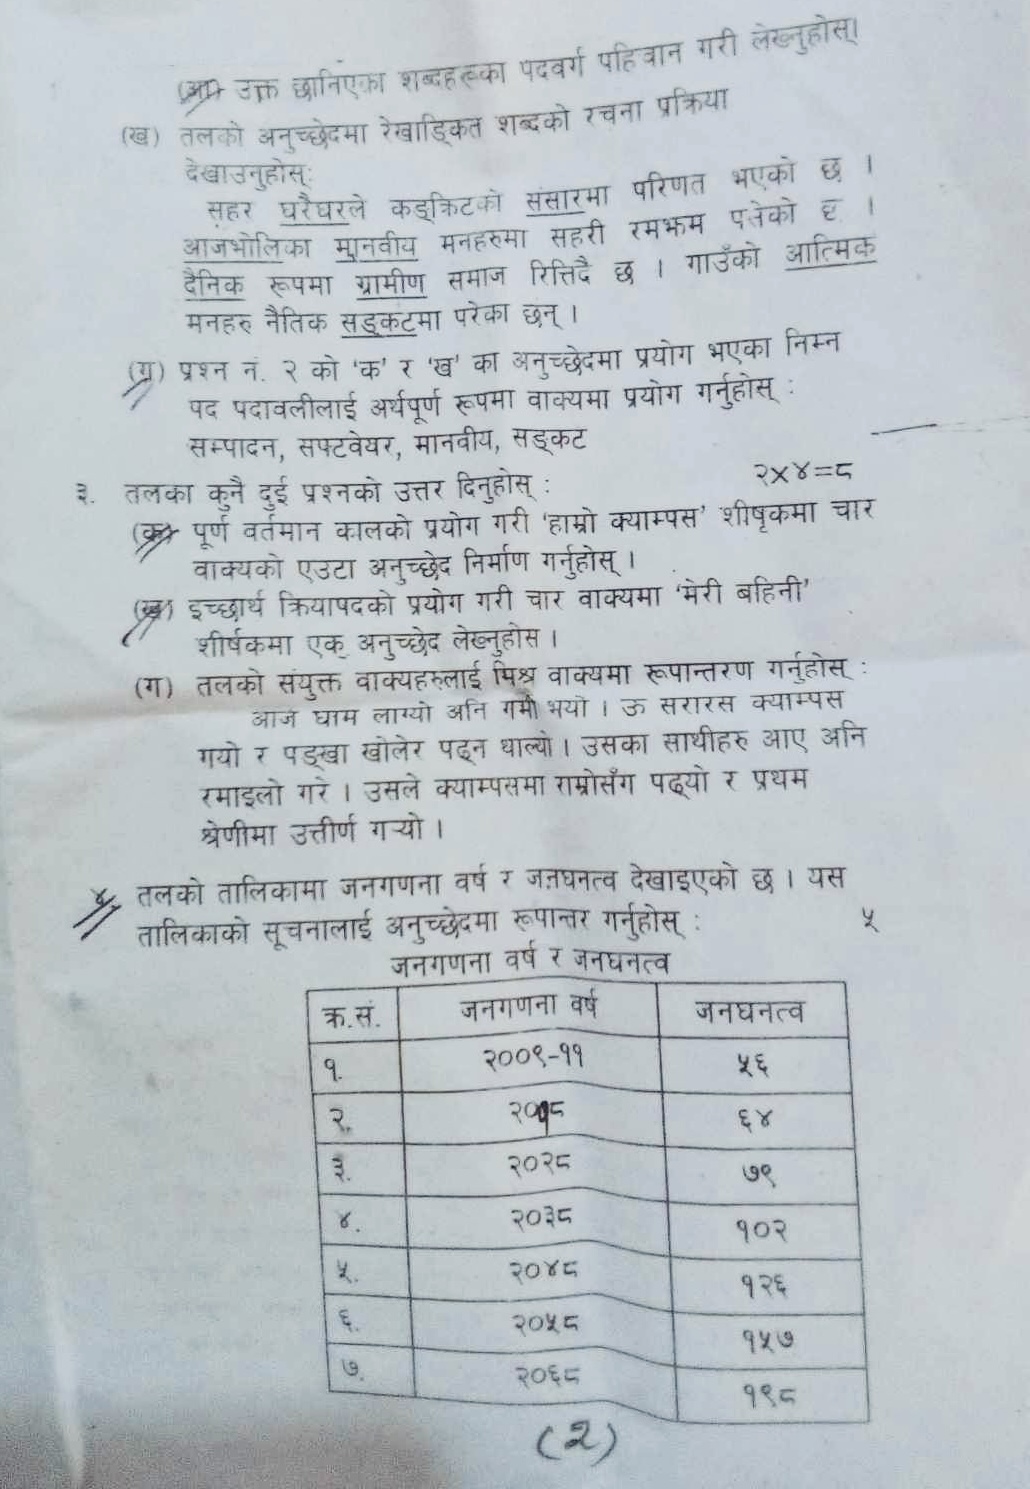 (अ) उक्त छानिएका शब्दहरूका पदवर्ग पहिचान गरी लेख्नुहोस्।
(ख) तलको अनुच्छेदमा रेखाङ्कित शब्दको रचना प्रक्रिया
देखाउनुहोस्:
सहर घरैघरले कङ्क्रिटको संसारमा परिणत भएको छ ।
आजभोलिका मानवीय मनहरुमा सहरी रमझम पसेको छ ।
दैनिक रूपमा ग्रामीण समाज रित्तिदै छ । गाउँको आत्मिक
मनहरु नैतिक सङ्कटमा परेका छन् ।
(ग) प्रश्न नं. २ को 'क' र 'ख' का अनुच्छेदमा प्रयोग भएका निम्न
पद पदावलीलाई अर्थपूर्ण रूपमा वाक्यमा प्रयोग गर्नुहोस् :
सम्पादन, सफ्टवेयर, मानवीय, सङ्कट
३. तलका कुनै दुई प्रश्नको उत्तर दिनुहोस् : २×४=८
(क) पूर्ण वर्तमान कालको प्रयोग गरी 'हाम्रो क्याम्पस' शीर्षकमा चार
वाक्यको एउटा अनुच्छेद निर्माण गर्नुहोस् ।
(ख) इच्छार्थ क्रियापदको प्रयोग गरी चार वाक्यमा 'मेरी बहिनी'
शीर्षकमा एक अनुच्छेद लेख्नुहोस ।
(ग) तलको संयुक्त वाक्यहरुलाई मिश्र वाक्यमा रूपान्तरण गर्नुहोस् :
आज घाम लाग्यो अनि गर्मी भयो । ऊ सरारस क्याम्पस
गयो र पङ्खा खोलेर पढ्न थाल्यो । उसका साथीहरु आए अनि
रमाइलो गरे । उसले क्याम्पसमा राम्रोसँग पढ्यो र प्रथम
श्रेणीमा उत्तीर्ण गऱ्यो ।
४. तलको तालिकामा जनगणना वर्ष र जनघनत्व देखाइएको छ । यस
तालिकाको सूचनालाई अनुच्छेदमा रूपान्तर गर्नुहोस् : ५
जनगणना वर्ष र जनघनत्व
क्र.सं. जनगणना वर्ष जनघनत्व
१. २००९-११ ५६
२. २०१८ ६४
३. २०२८ ७९
४. २०३८ १०२
५. २०४८ १२६
६. २०५८ १५७
७. २०६८ १९८
(2)